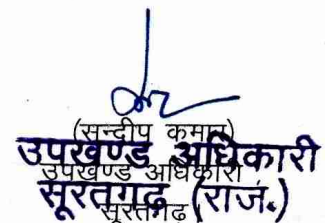 (सन्दीप कुमार)
उपखण्ड अधिकारी
उपखण्ड अधिकारी
सूरतगढ़ (राज.)
सूरतगढ़